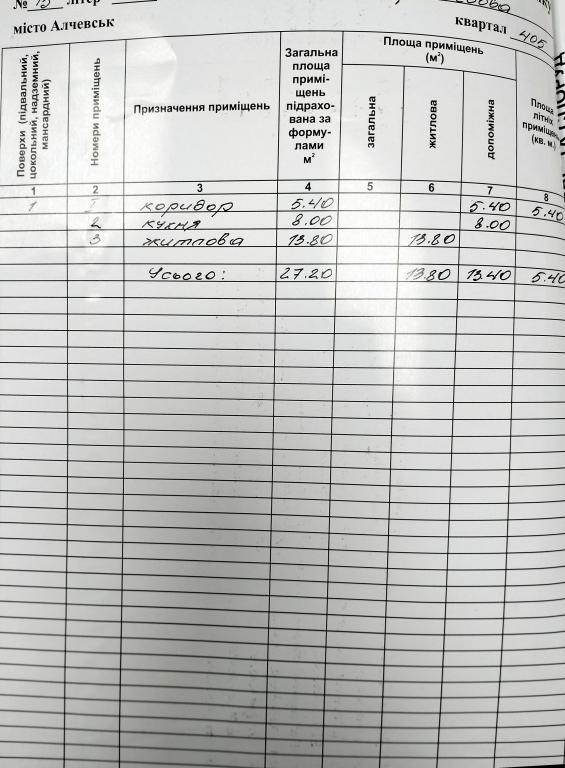 № 15 літер
місто Алчевськ
квартал 405
Поверхи (підвальний, цокольний, надземний, мансардний)
Номери приміщень
Призначення приміщень
Загальна площа примі-щень підрахо-вана за форму-лами м²
Площа приміщень (м²)
загальна
житлова
допоміжна
Площа літніх приміщень (кв. м.)
1 2 3 4 5 6 7 8
1 1 коридор 5.40 5.40 5.40
2 кухня 8.00 8.00
3 житлова 13.80 13.80
Усього: 27.20 13.80 13.40 5.40